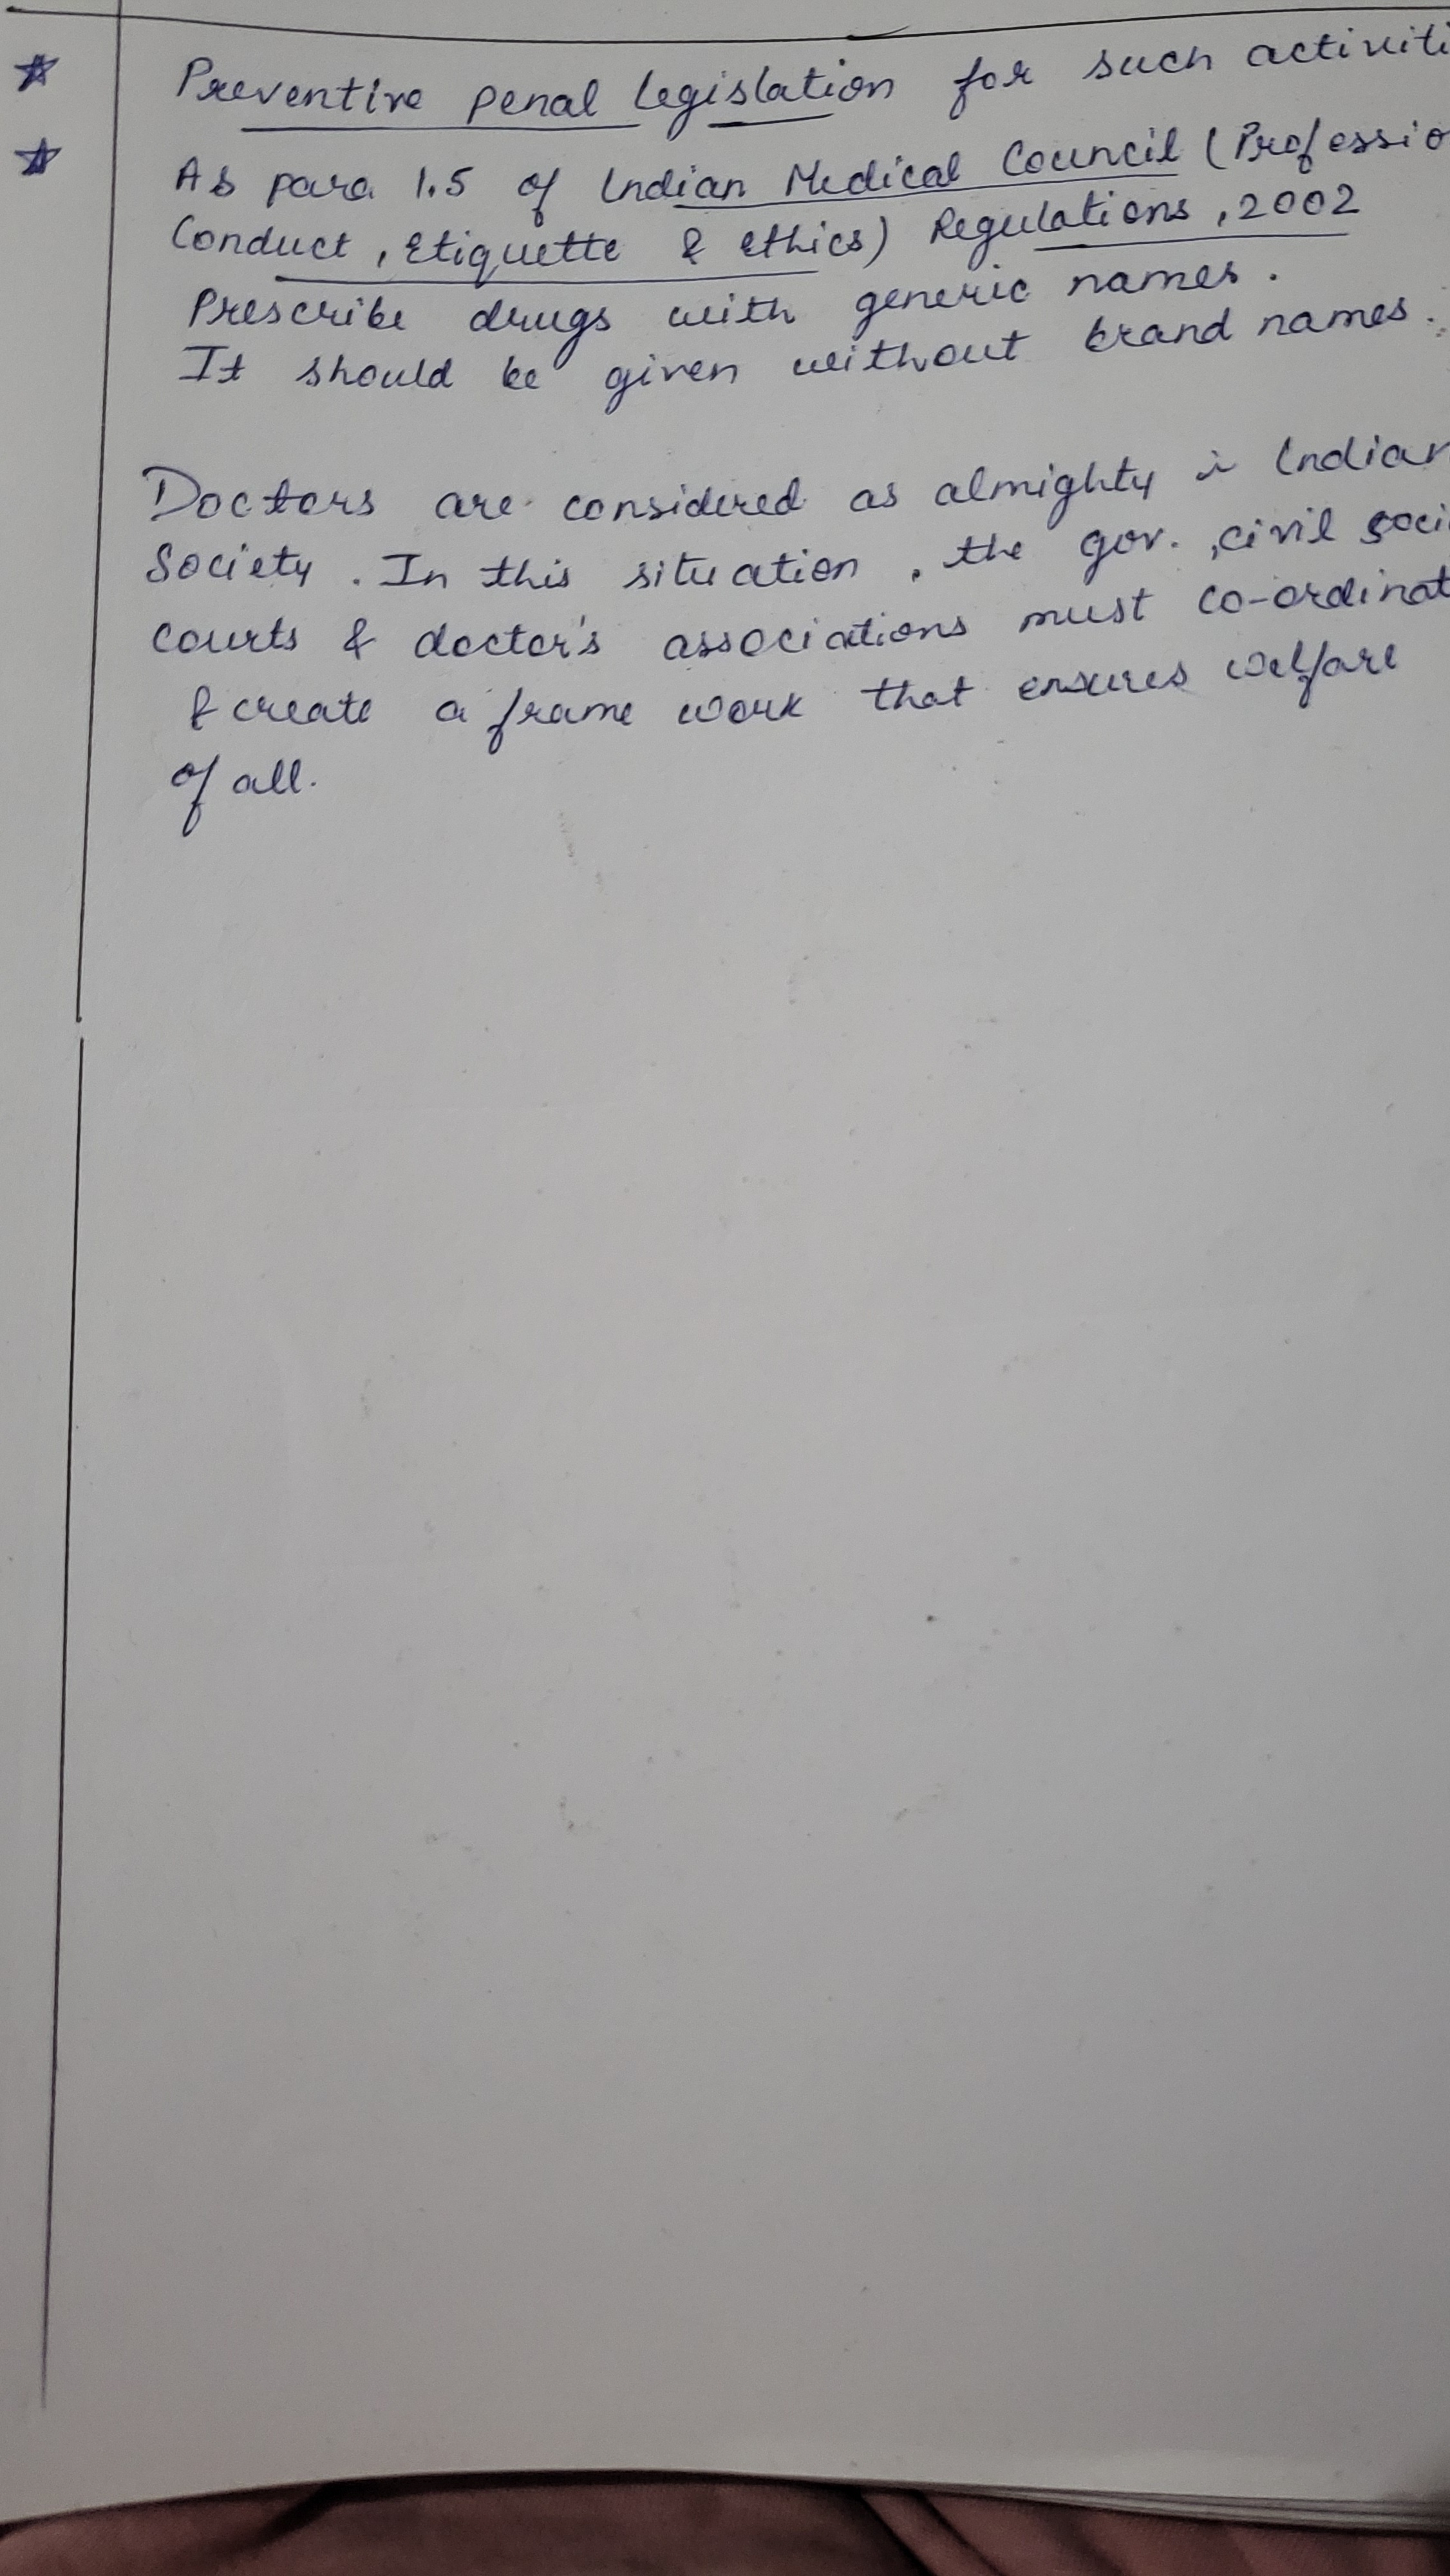 ☆ Preventive penal legislation for such activiti
☆ As para 1.5 of Indian Medical Council (Professio
Conduct, Etiquette & Ethics) Regulations, 2002
Prescribe drugs with generic names.
It should be given without brand names.
Doctors are considered as almighty in Indian
Society. In this situation, the gov., civil soci
courts & doctor's associations must co-ordinat
& create a frame work that ensures welfare
of all.